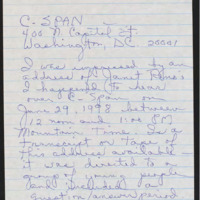 C-SPAN
400 N. Capitol St
Washington, DC 20001
I was engrossed by an
address of Janet Reno's
I happened to hear
over C-Span on
June 29, 1993 between
12 noon and 1:00 PM
Mountain Time. Is a
transcript or tape of
this address available –
it was directed to a
group of young people
and included a
question/answer period.